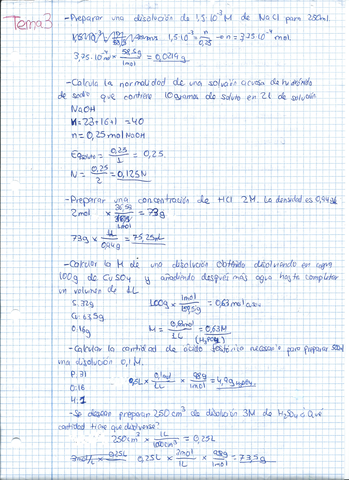 Tema 3
-Preparar una disolución de 1,5·10⁻³ M de NaCl para 250ml
1,5·10⁻³ = n/0,25 → n = 3,75·10⁻⁴ mol
3,75·10⁻⁴ × 58,5g/1mol = 0,0219g
-Calcula la normalidad de una solución acuosa de hidróxido
de sodio que contiene 10 gramos de soluto en 2L de solución
NaOH
M=23+16+1=40
n=0,25 mol NaOH
Eqsoluto = 0,25/1 = 0,25.
N = 0,25/2 = 0,125N
-Preparar una concentración de HCl 2M. La densidad es 0,94
2mol × 36,5g/1mol = 73g
73g ×
-Calcular la M de una disolución obtenida disolviendo en agua
100g de CuSO4 y añadiendo después más agua hasta completar
un volumen de 1L
S: 32g
Cu: 63,5g
O: 16g
100g × 1mol/159,5g = 0,63mol
M = 0,63mol/1L = 0,63M
(H₃PO4)
-Calcular la cantidad de ácido fosfórico necesario para preparar
una disolución 0,1M.
P: 31
O: 16
H: 1
0,5L × 0,1mol/1L × 98g/1mol = 4,9g H₃PO4
-Se desean preparar 250 cm³ de disolución 3M de H₂SO4 ¿Qué
cantidad tiene que disolverse?
250cm³ × 1L/1000cm³ = 0,25L
0,25L × 3mol/1L × 98g/1mol = 73,5g